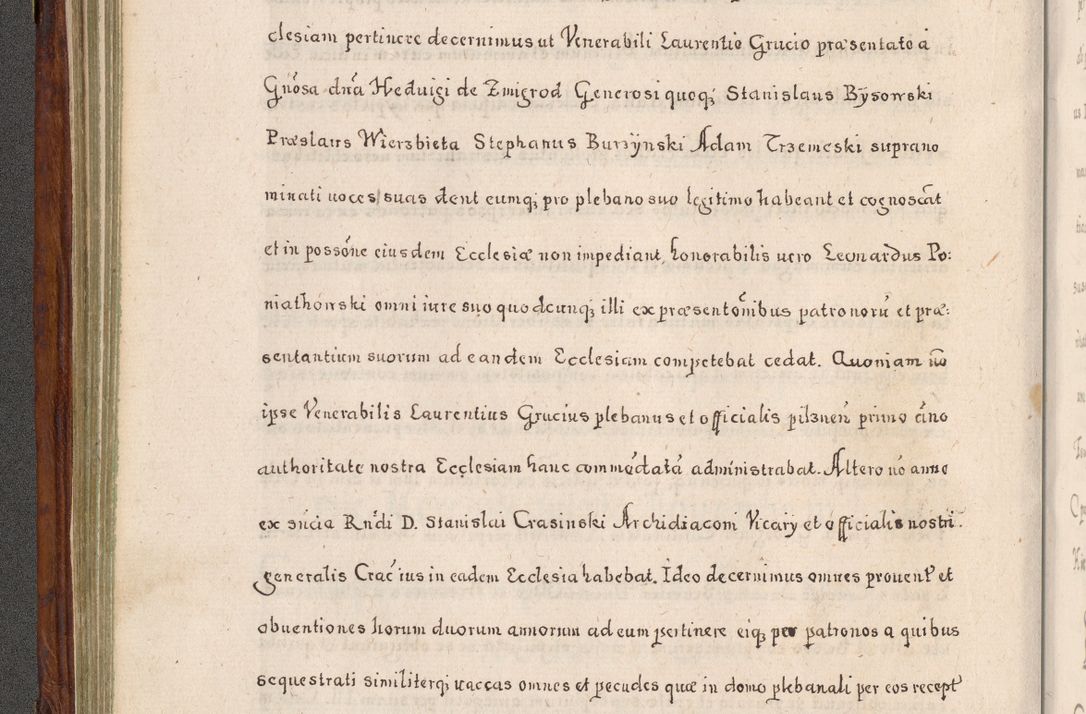 clesiam pertinere decernimus ut Venerabili Laurentio Grucio præsentato a
Gn̄osa dn̄a Heduigi de Zmigrod Generosi quoq; Stanislaus Bÿsowski
Præslaus Wierzbieta Stephanus Burzÿnski Adam Trzemeski suprano
minati uoces suas dent eumq; pro plebano suo legitimo habeant et cognoscāt
et in possōne eiusdem Ecclesiæ non impediant, honorabilis uero Leonardus Po:
niathowski omni iure suo quodcunq; illi ex præsentōnibus patronorū et præ:
sentantium suorum ad eandem Ecclesiam competebat cedat. Quoniam uō
ipse Venerabilis Laurentius Grucius plebanus et officialis pilznen̄ primo āno
authoritate nostra Ecclesiam hanc commēdatā administrabat. Altero uō anno
ex sn̄cia Rn̄di D. Stanislai Crasinski Archidiaconi Vicarÿ et officialis nostri
generalis Crac̄ ius in eadem Ecclesia habebat. Ideo decernimus omnes prouent' et
obuentiones horum duorum annorum ad eum pertinere eiq; per patronos a quibus
sequestrati similiterq; uaccas omnes et pecudes quæ in domo plebanali per eos recept'